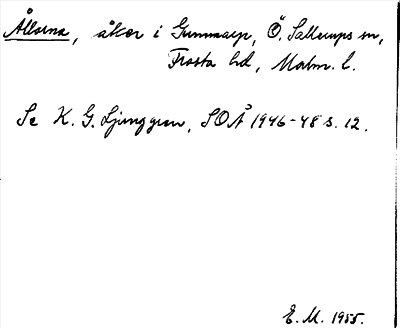 Ållorna, åker i Gunnarp, Ö. Sallerups sn,
Frosta hd, Malm. l.
Se K. G. Ljunggren, SOÅ 1946-48 s. 12.
E. M. 1955.